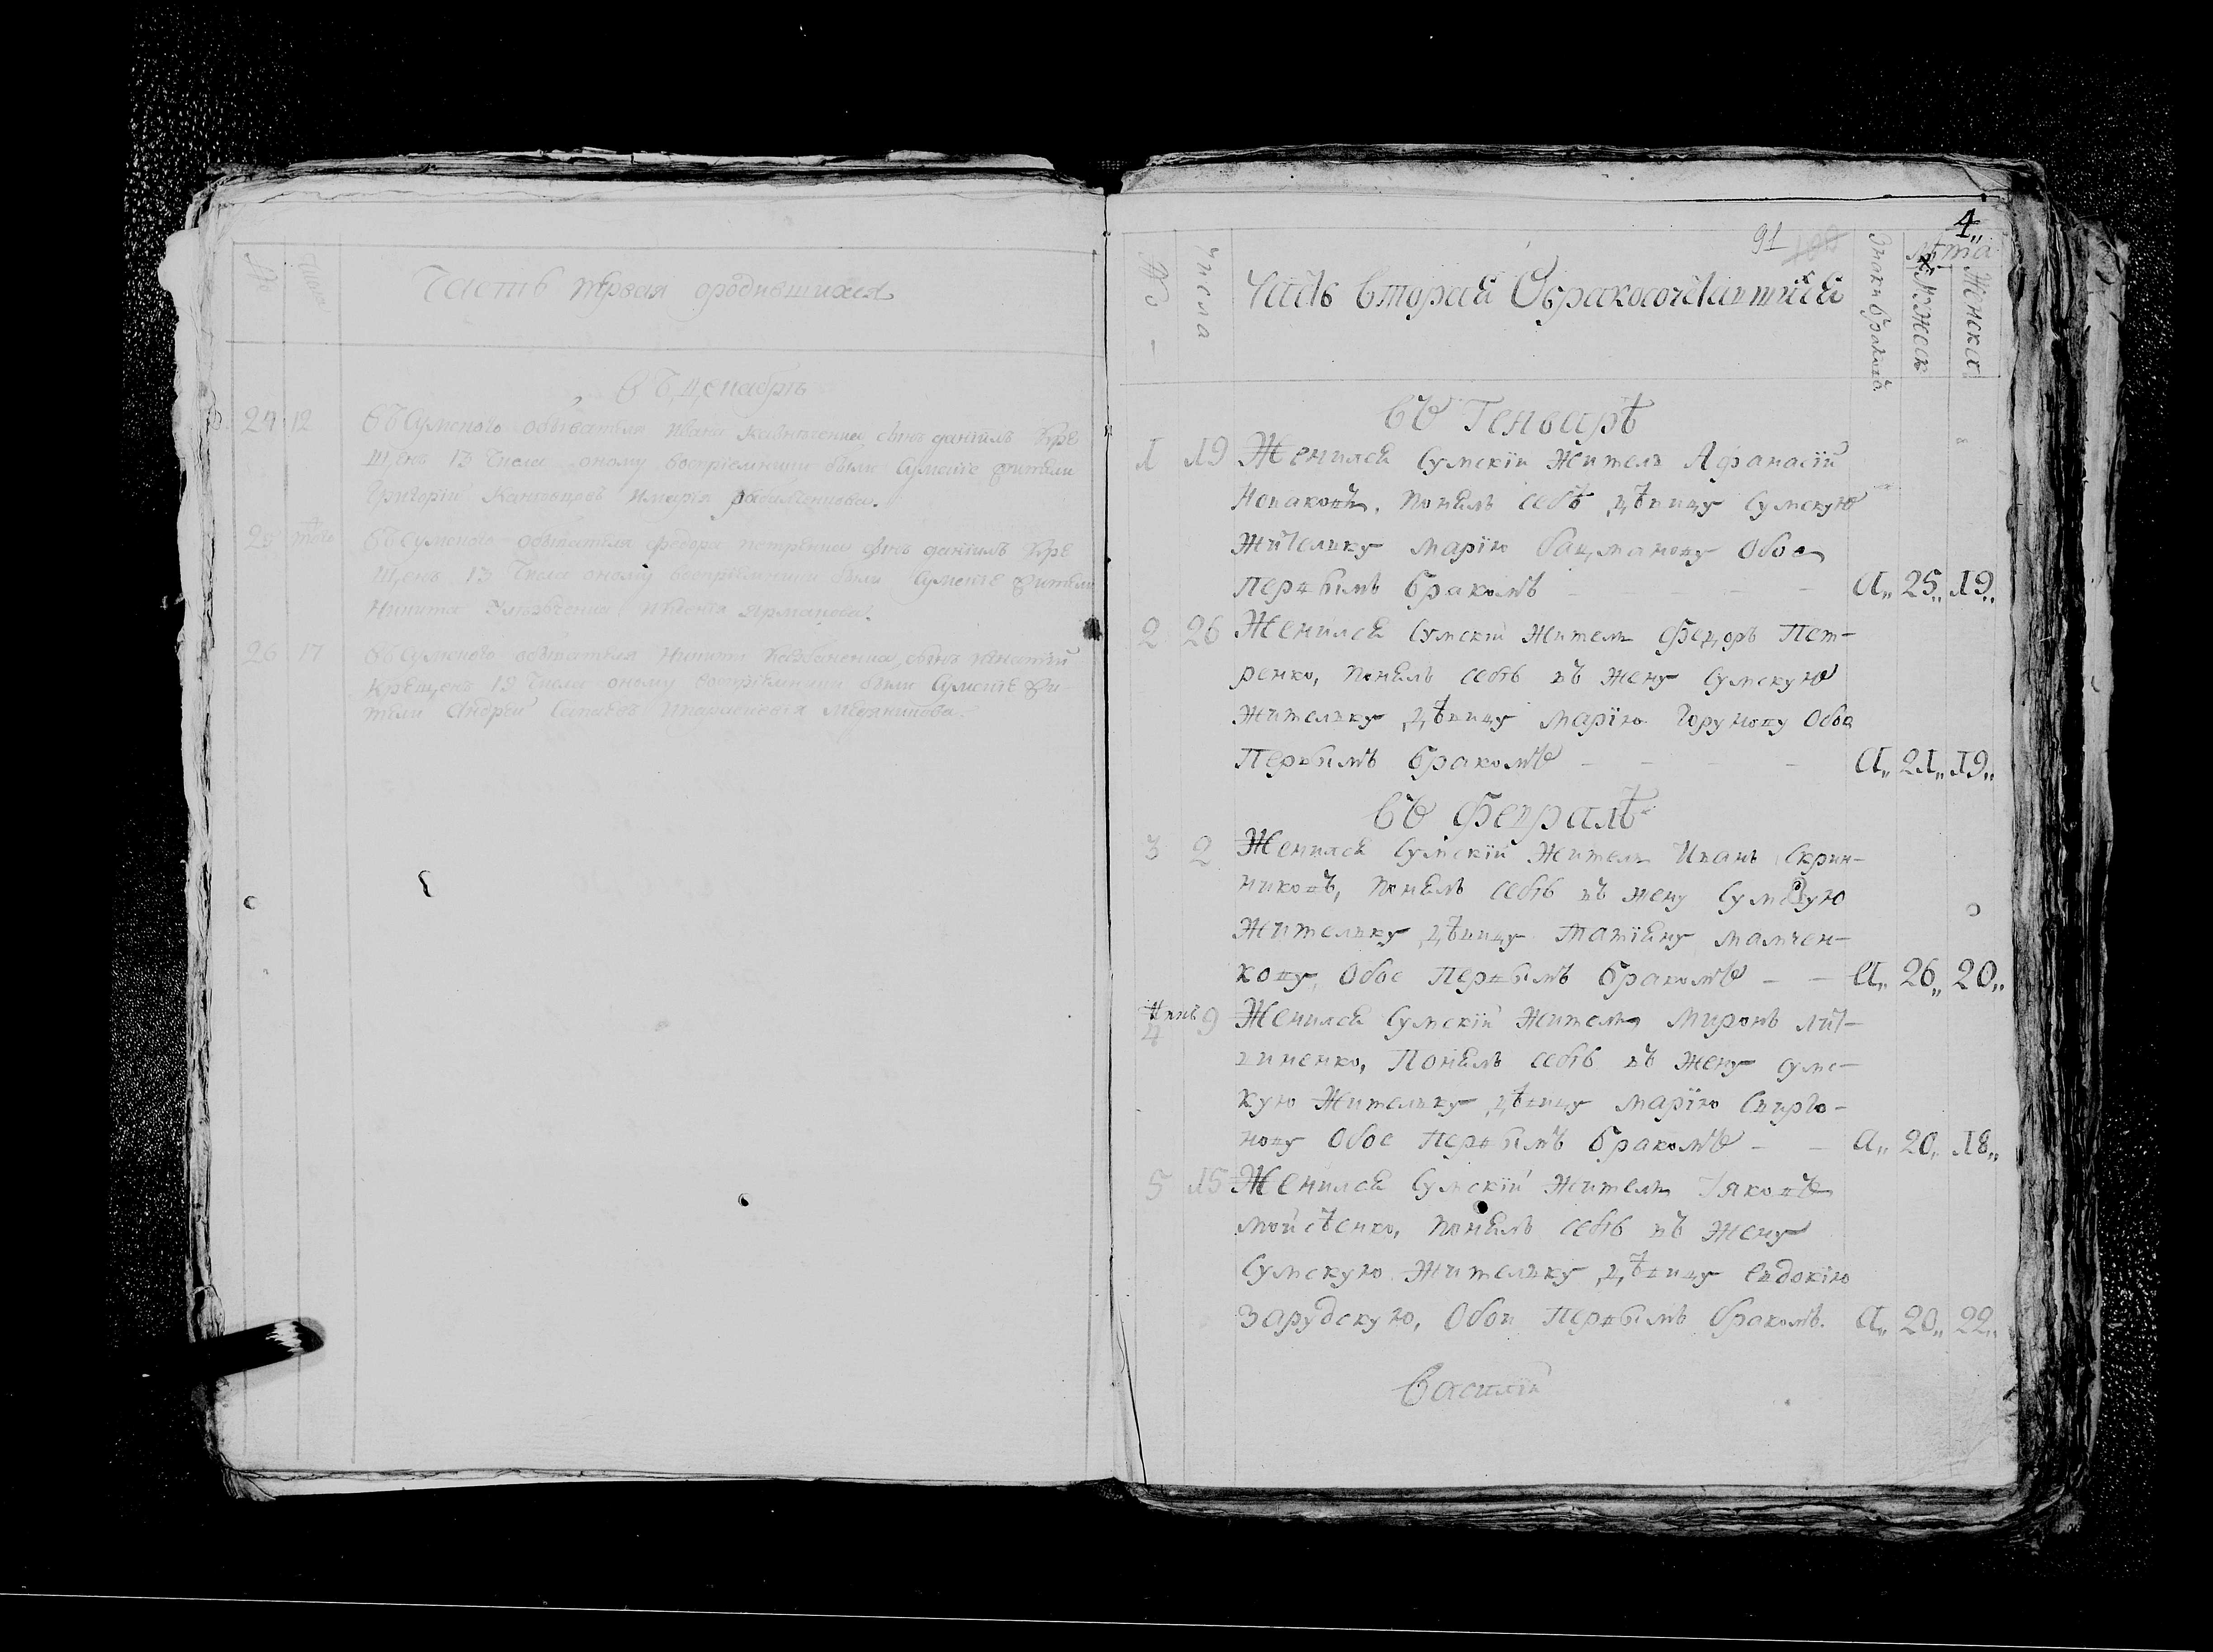 № Числа
Часть первая ородившихся
въ декабрѣ
24 12 Въ Сумского обывателя Ивана сынъ даніилъ кре
щенъ 13 Числа оному воспріемники были Сумскіе жители
Григорій имарія
25 того Въ Сумского обывателя федора петренка сынъ даніилъ кре
щенъ 13 Числа оному воспріемники были Сумскіе жители
Никита Ярмакова.
26 17 Въ Сумского обывателя Никити сынъ игнатій
крещенъ 19 Числа оному воспріемники были Сумскіе жи-
тели Андрей ипараскевія
4
91
№ Числа Часть вторая Обракосочетавшихся Знаки браковъ Лѣта Мужеск Женска
въ Генварѣ
1 19 Женился Сумскій житель Афанасій
Новаковъ, понялъ себѣ дѣвицу Сумскую
жителку марію бацманову Обое
первымъ бракомъ – – – – – а,, 25,, 19,,
2 26 Женился Сумскій житель Федоръ Пет-
ренко, понялъ себѣ въ жену Сумскую
жителку дѣвицу марію Горунову Обоа
Первымъ бракомъ – – – – а,, 21,, 19,,
въ Февралѣ
3 2 Женился Сумскій житель Иванъ Скрин-
никовъ, понялъ себѣ въ жену Сумскую
жителку дѣвицу татіяну мамчен-
кову, Обое первымъ бракомъ – – а,, 26,, 20,,
4 9 Женился Сумскій житель Миронъ лит-
виненко, Понялъ себѣ въ жену сумс-
кую жителку дѣвицу марію Свирго-
нову Обое первымъ бракомъ – – а,, 20,, 18,,
5 15 Женился Сумскій житель Іяковъ
мойсѣенко, понялъ себѣ въ жену
Сумскую жителку дѣвицу евдокію
Зарудскую, Обои первымъ бракомъ. а,, 20,, 22,,
Василій